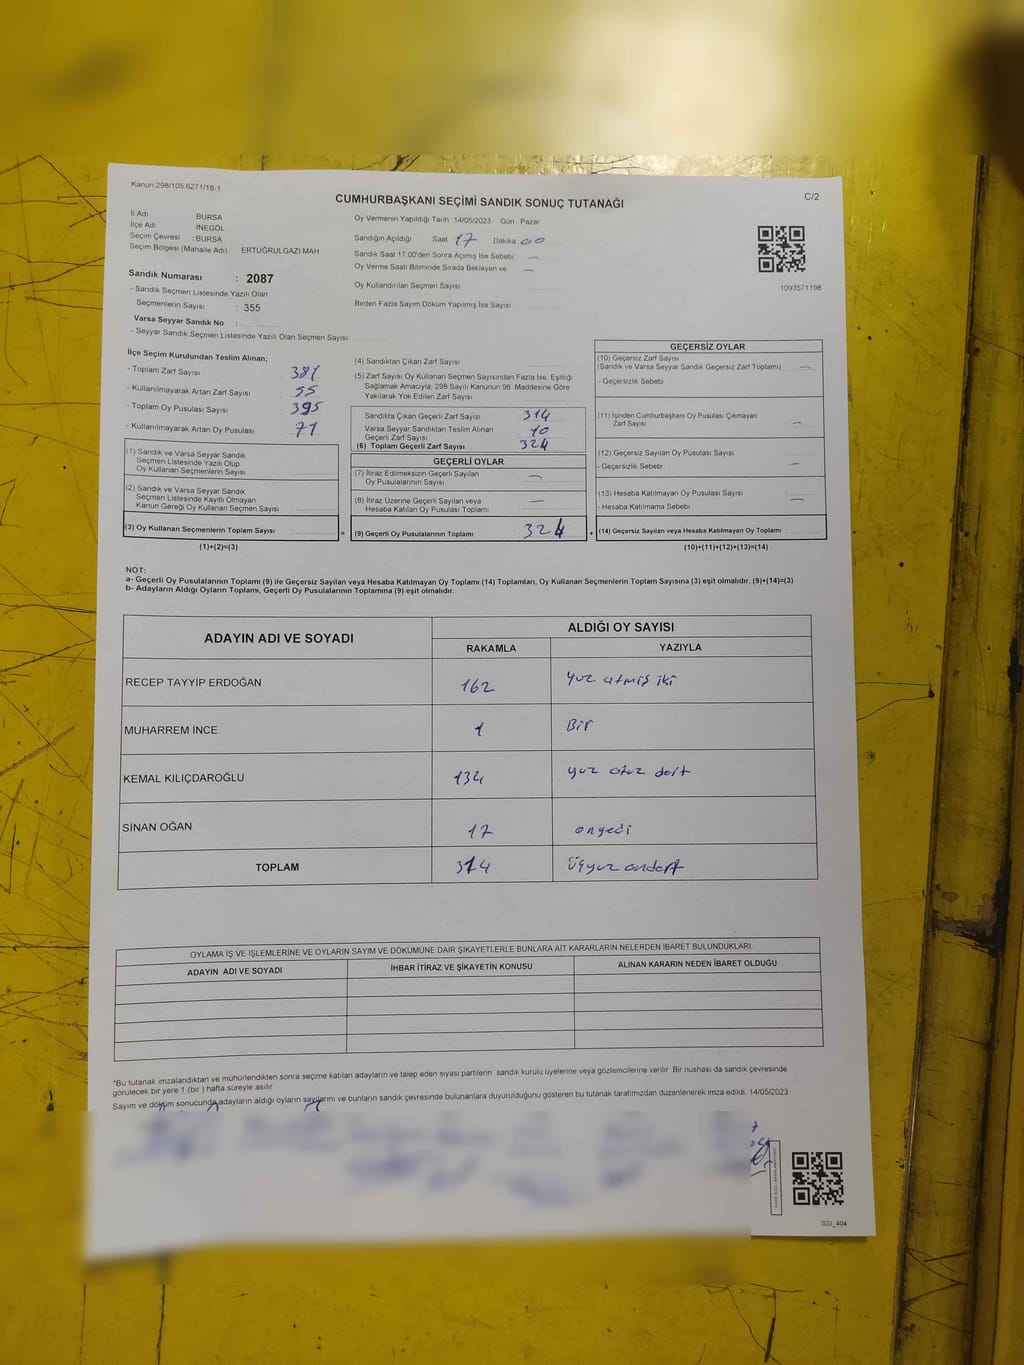 Kanun:298/105,6271/18-1
C/2
CUMHURBAŞKANI SEÇİMİ SANDIK SONUÇ TUTANAĞI
İli Adı : BURSA
İlçe Adı İNEGÖL
Seçim Çevresi : BURSA
Seçim Bölgesi (Mahalle Adı) ERTUĞRULGAZİ MAH
Sandık Numarası : 2087
- Sandık Seçmen Listesinde Yazılı Olan
Seçmenlerin Sayısı : 355
Varsa Seyyar Sandık No :
- Seyyar Sandık Seçmen Listesinde Yazılı Olan Seçmen Sayısı
Oy Vermenin Yapıldığı Tarih 14/05/2023 Gün : Pazar
Sandığın Açıldığı Saat 17 Dakika 00
Sandık Saat 17.00'den Sonra Açımış İse Sebebi —
Oy Verme Saati Bitiminde Sırada Bekleyen ve —
Oy Kullandırılan Seçmen Sayısı
Birden Fazla Sayım Döküm Yapılmış İse Sayısı
1093571198
İlçe Seçim Kurulundan Teslim Alınan;
- Toplam Zarf Sayısı 381
- Kullanılmayarak Artan Zarf Sayısı 55
- Toplam Oy Pusulası Sayısı 395
- Kullanılmayarak Artan Oy Pusulası 71
(1) Sandık ve Varsa Seyyar Sandık
Seçmen Listesinde Yazılı Olup
Oy Kullanan Seçmenlerin Sayısı
(2) Sandık ve Varsa Seyyar Sandık
Seçmen Listesinde Kayıtlı Olmayan
Kanun Gereği Oy Kullanan Seçmen Sayısı
(3) Oy Kullanan Seçmenlerin Toplam Sayısı
(1)+(2)=(3)
=
(4) Sandıktan Çıkan Zarf Sayısı
(5) Zarf Sayısı Oy Kullanan Seçmen Sayısından Fazla İse, Eşitliği
Sağlamak Amacıyla; 298 Sayılı Kanunun 98. Maddesine Göre
Yakılarak Yok Edilen Zarf Sayısı
Sandıkta Çıkan Geçerli Zarf Sayısı 314
Varsa Seyyar Sandıktan Teslim Alınan
Geçerli Zarf Sayısı 10
(6) Toplam Geçerli Zarf Sayısı 324
GEÇERLİ OYLAR
(7) İtiraz Edilmeksizin Geçerli Sayılan
Oy Pusulalarının Sayısı —
(8) İtiraz Üzerine Geçerli Sayılan veya
Hesaba Katılan Oy Pusulası Toplamı —
(9) Geçerli Oy Pusulalarının Toplamı 324
+
GEÇERSİZ OYLAR
(10) Geçersiz Zarf Sayısı
(Sandık ve Varsa Seyyar Sandık Geçersiz Zarf Toplamı) —
- Geçersizlik Sebebi
(11) İçinden Cumhurbaşkanı Oy Pusulası Çıkmayan
Zarf Sayısı —
(12) Geçersiz Sayılan Oy Pusulası Sayısı
- Geçersizlik Sebebi —
(13) Hesaba Katılmayan Oy Pusulası Sayısı —
- Hesaba Katılmama Sebebi
(14) Geçersiz Sayılan veya Hesaba Katılmayan Oy Toplamı
(10)+(11)+(12)+(13)=(14)
NOT:
a- Geçerli Oy Pusulalarının Toplamı (9) ile Geçersiz Sayılan veya Hesaba Katılmayan Oy Toplamı (14) Toplamları, Oy Kullanan Seçmenlerin Toplam Sayısına (3) eşit olmalıdır. (9)+(14)=(3)
b- Adayların Aldığı Oyların Toplamı, Geçerli Oy Pusulalarının Toplamına (9) eşit olmalıdır.
ADAYIN ADI VE SOYADI ALDIĞI OY SAYISI
RAKAMLA YAZIYLA
RECEP TAYYİP ERDOĞAN 162 yüz atmış iki
MUHARREM İNCE 1 Bir
KEMAL KILIÇDAROĞLU 134 yuz otuz dört
SİNAN OĞAN 17 onyedi
TOPLAM 314 üçyuz ondört
OYLAMA İŞ VE İŞLEMLERİNE VE OYLARIN SAYIM VE DÖKÜMÜNE DAİR ŞİKAYETLERLE BUNLARA AİT KARARLARIN NELERDEN İBARET BULUNDUKLARI
ADAYIN ADI VE SOYADI İHBAR İTİRAZ VE ŞİKAYETİN KONUSU ALINAN KARARIN NEDEN İBARET OLDUĞU
*Bu tutanak imzalandıktan ve mühürlendikten sonra seçime katılan adayların ve talep eden siyasi partilerin sandık kurulu üyelerine veya gözlemcilerine verilir. Bir nüshası da sandık çevresinde
görülecek bir yere 1 (bir ) hafta süreyle asılır.
Sayım ve döküm sonucunda adayların aldığı oyların sayılarını ve bunların sandık çevresinde bulunanlara duyurulduğunu gösteren bu tutanak tarafımızdan düzenlenerek imza edildi. 14/05/2023
SSI_404